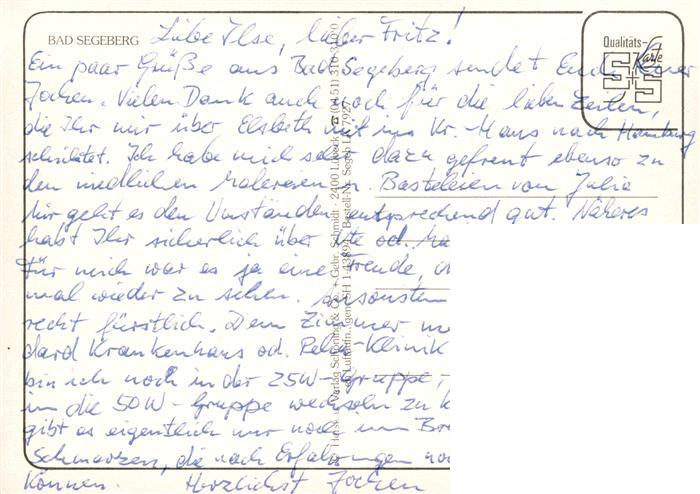 BAD SEGEBERG
Liebe Ilse, lieber Fritz!
Qualitäts-
Karte
S+S
Ein paar Grüße aus Bad Segeberg sendet Euch Euer
Jochen. Vielen Dank auch noch für die lieben Zeilen,
die Ihr mir über Elsbeth mit ins Kr.-Haus nach Hamburg
schicktet. Ich habe mich sehr dazu gefreut ebenso zu
den niedlichen Malereien u. Basteleien von Julia
Mir geht es den Umständen entsprechend gut. Näheres
habt Ihr sicherlich über Ute od.
Für mich war es ja eine Freude,
mal wieder zu sehen. ansonsten
recht fürstlich. Dem Zimmer
dard Krankenhaus od. Reha-Klinik
bin ich noch in der 25W-Gruppe,
in die 50W-Gruppe wechseln zu
gibt es eigentlich nur noch im
Schmerzen, die nach Erfahrungen
können. Herzlichst Jochen
Verlag Schöning & Co. + Gebr. Schmidt, 2400 Lübeck ☎ (0451) 31 03